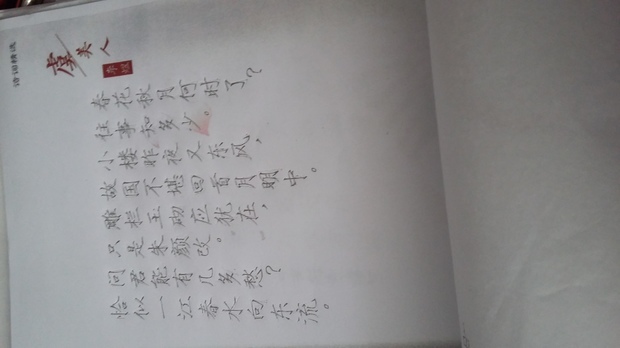 诗词精选
虞美人
李煜
春花秋月何时了?
往事知多少。
小楼昨夜又东风,
故国不堪回首月明中。
雕栏玉砌应犹在,
只是朱颜改。
问君能有几多愁?
恰似一江春水向东流。